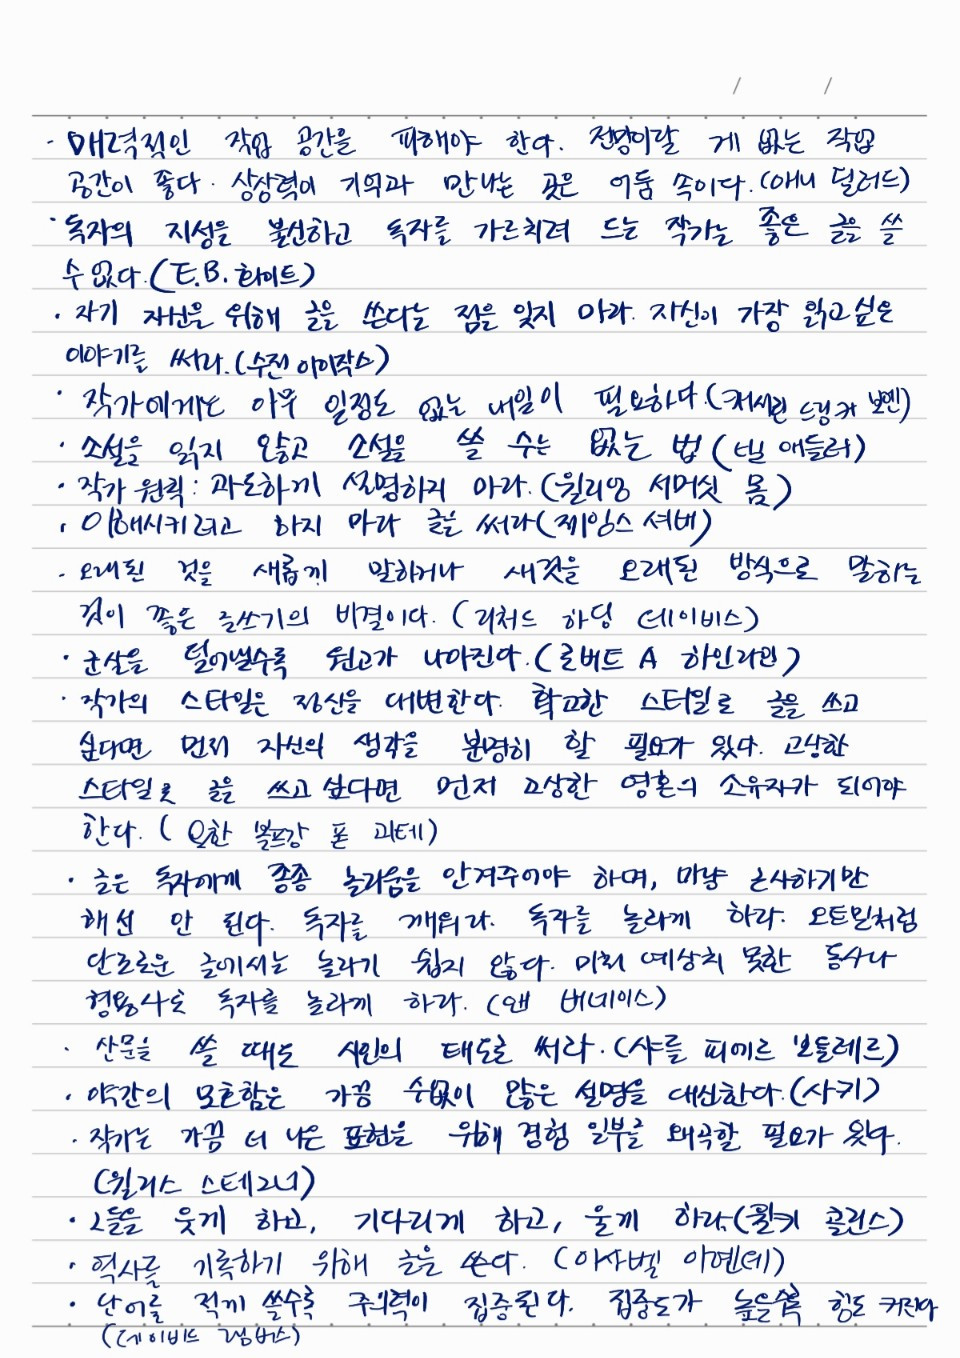 · 매력적인 작업 공간을 피해야 한다. 전망이랄 게 없는 작업
공간이 좋다. 상상력이 기억과 만나는 곳은 어둠 속이다. (애니 딜러드)
· 독자의 지성을 불신하고 독자를 가르치려 드는 작가는 좋은 글을 쓸
수 없다. (E.B. 화이트)
· 자기 자신을 위해 글을 쓴다는 점을 잊지 마라. 자신이 가장 읽고 싶은
이야기를 써라. (수전 아이작스)
· 작가에게는 아무 일정도 없는 내일이 필요하다. (캐서린 드링커 보엔)
· 소설을 읽지 않고 소설을 쓸 수는 없는 법 (닐 애들러)
· 작가 원칙 : 과도하게 설명하지 마라. (윌리엄 서머싯 몸)
· 이해시키려고 하지 마라 글을 써라 (제임스 셔버)
· 오래된 것을 새롭게 말하거나 새것을 오래된 방식으로 말하는
것이 좋은 글쓰기의 비결이다. (리처드 하딩 데이비스)
· 군살을 덜어낼수록 원고가 나아진다. (로버트 A 하인라인)
· 작가의 스타일은 정신을 대변한다. 확고한 스타일로 글을 쓰고
싶다면 먼저 자신의 생각을 분명히 할 필요가 있다. 고상한
스타일로 글을 쓰고 싶다면 먼저 고상한 영혼의 소유자가 되어야
한다. (요한 볼프강 폰 괴테)
· 글은 독자에게 종종 놀라움을 안겨주어야 하며, 마냥 근사하기만
해선 안 된다. 독자를 깨워라. 독자를 놀라게 하라. 오트밀처럼
단조로운 글에서는 놀라기 쉽지 않다. 미처 예상치 못한 동사나
형용사로 독자를 놀라게 하라. (앤 버네이스)
· 산문을 쓸 때도 시인의 태도로 써라. (샤를 피에르 보들레르)
· 약간의 모호함은 가끔 수없이 많은 설명을 대신한다. (사키)
· 작가는 가끔 더 나은 표현을 위해 경험 일부를 왜곡할 필요가 있다.
(월리스 스테그너)
· 그들을 웃게 하고, 기다리게 하고, 울게 하라. (윌키 콜린스)
· 역사를 기록하기 위해 글을 쓴다. (이사벨 아옌데)
· 단어를 적게 쓸수록 주의력이 집중된다. 집중도가 높을수록 힘도 커진다
(데이비드 램버스)